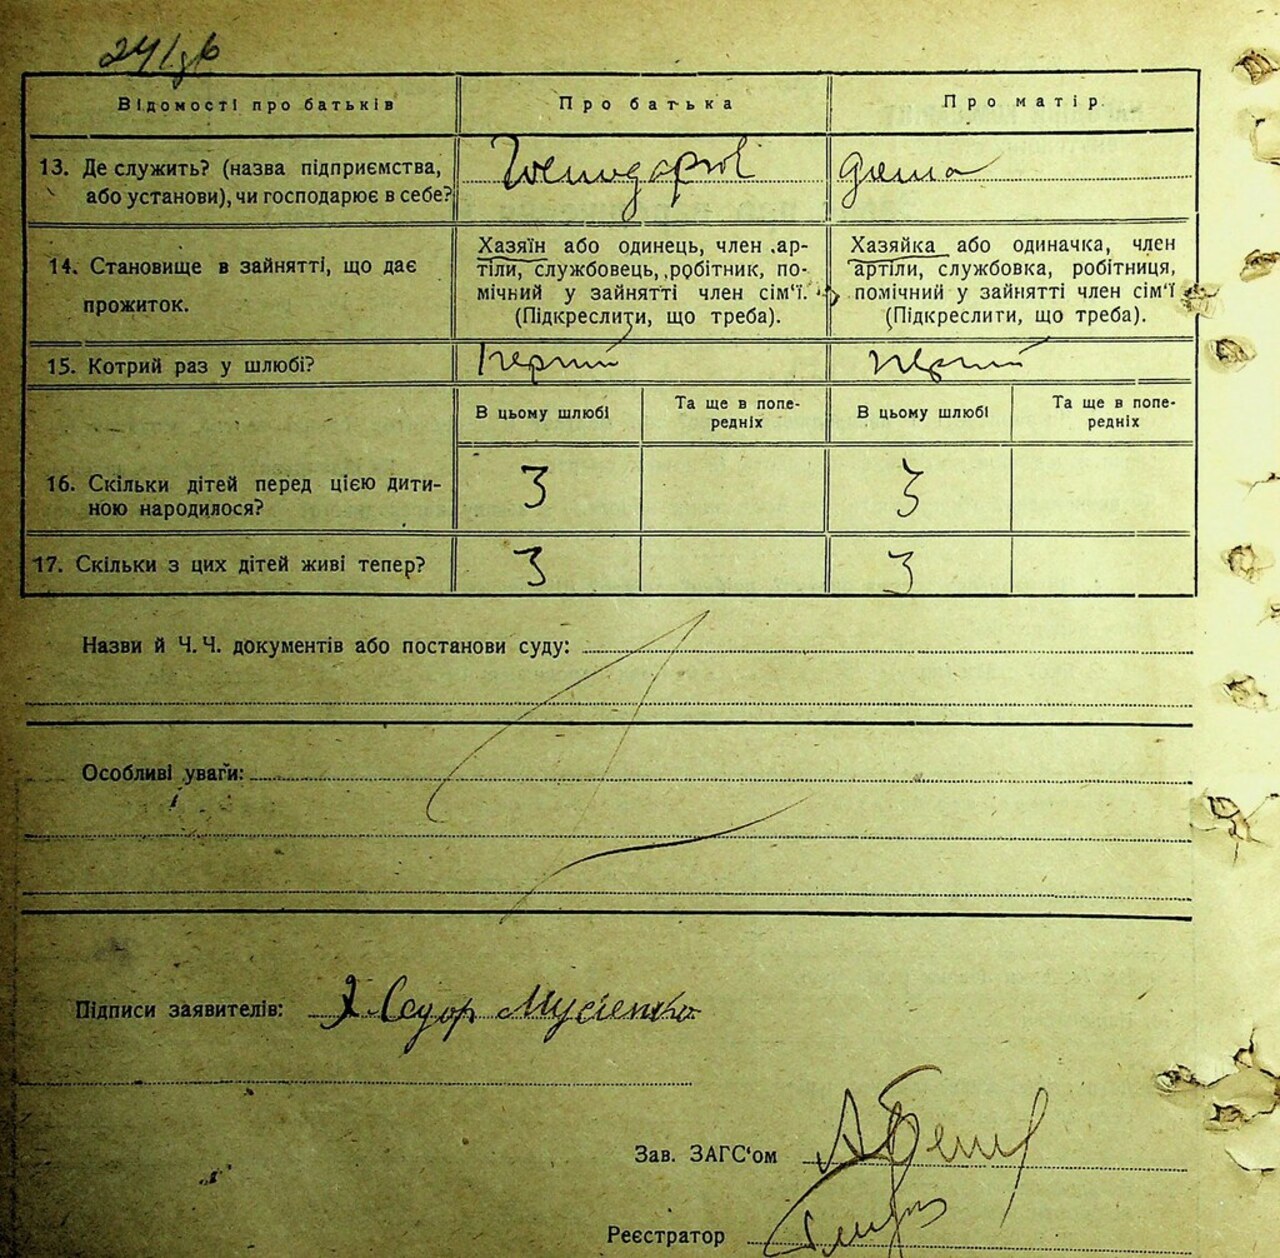 Відомості про батьків Про батька Про матір
13. Де служить? (назва підприємства,
або установи), чи господарює в себе?
14. Становище в зайнятті, що дає
прожиток.
Хазяїн або одинець, член ар-
тіли, службовець, робітник, по-
мічний у зайнятті член сім'ї.
(Підкреслити, що треба).
Хазяйка або одиначка, член
артіли, службовка, робітниця,
помічний у зайнятті член сім'ї
(Підкреслити, що треба).
15. Котрий раз у шлюбі? перший перший
В цьому шлюбі Та ще в попе-
редніх
В цьому шлюбі Та ще в попе-
редніх
16. Скільки дітей перед цією дити-
ною народилося? 3 3
17. Скільки з цих дітей живі тепер? 3 3
Назви й Ч. Ч. документів або постанови суду:
Особливі уваги:
Підписи заявителів: Х Седор Мусіенко
Зав. ЗАГС'ом
Реєстратор